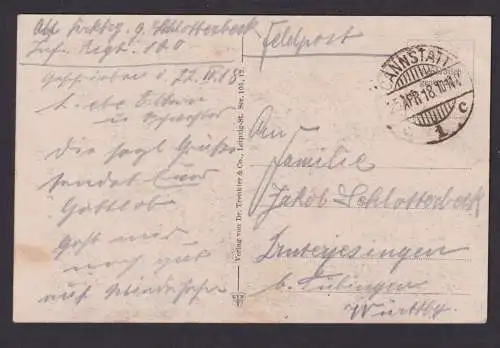 Abs. g. Schlotterbeck
Inf. Regt. 180
Feldpost
Geschrieben d. 22. IV. 18
CANNSTATT
APR. 18. 10-11
1 c
Liebe Eltern
u. Schwester
Die Grüße
sendet Euer
Gottlob
Geht mir
noch gut
auf Wiedersehen
Verlag von Dr. Trenkler & Co., Leipzig-St. Ser. 105, 12.
An
Familie
Jakob Schlotterbeck
Unterjesingen
b. Tübingen
Württbg.